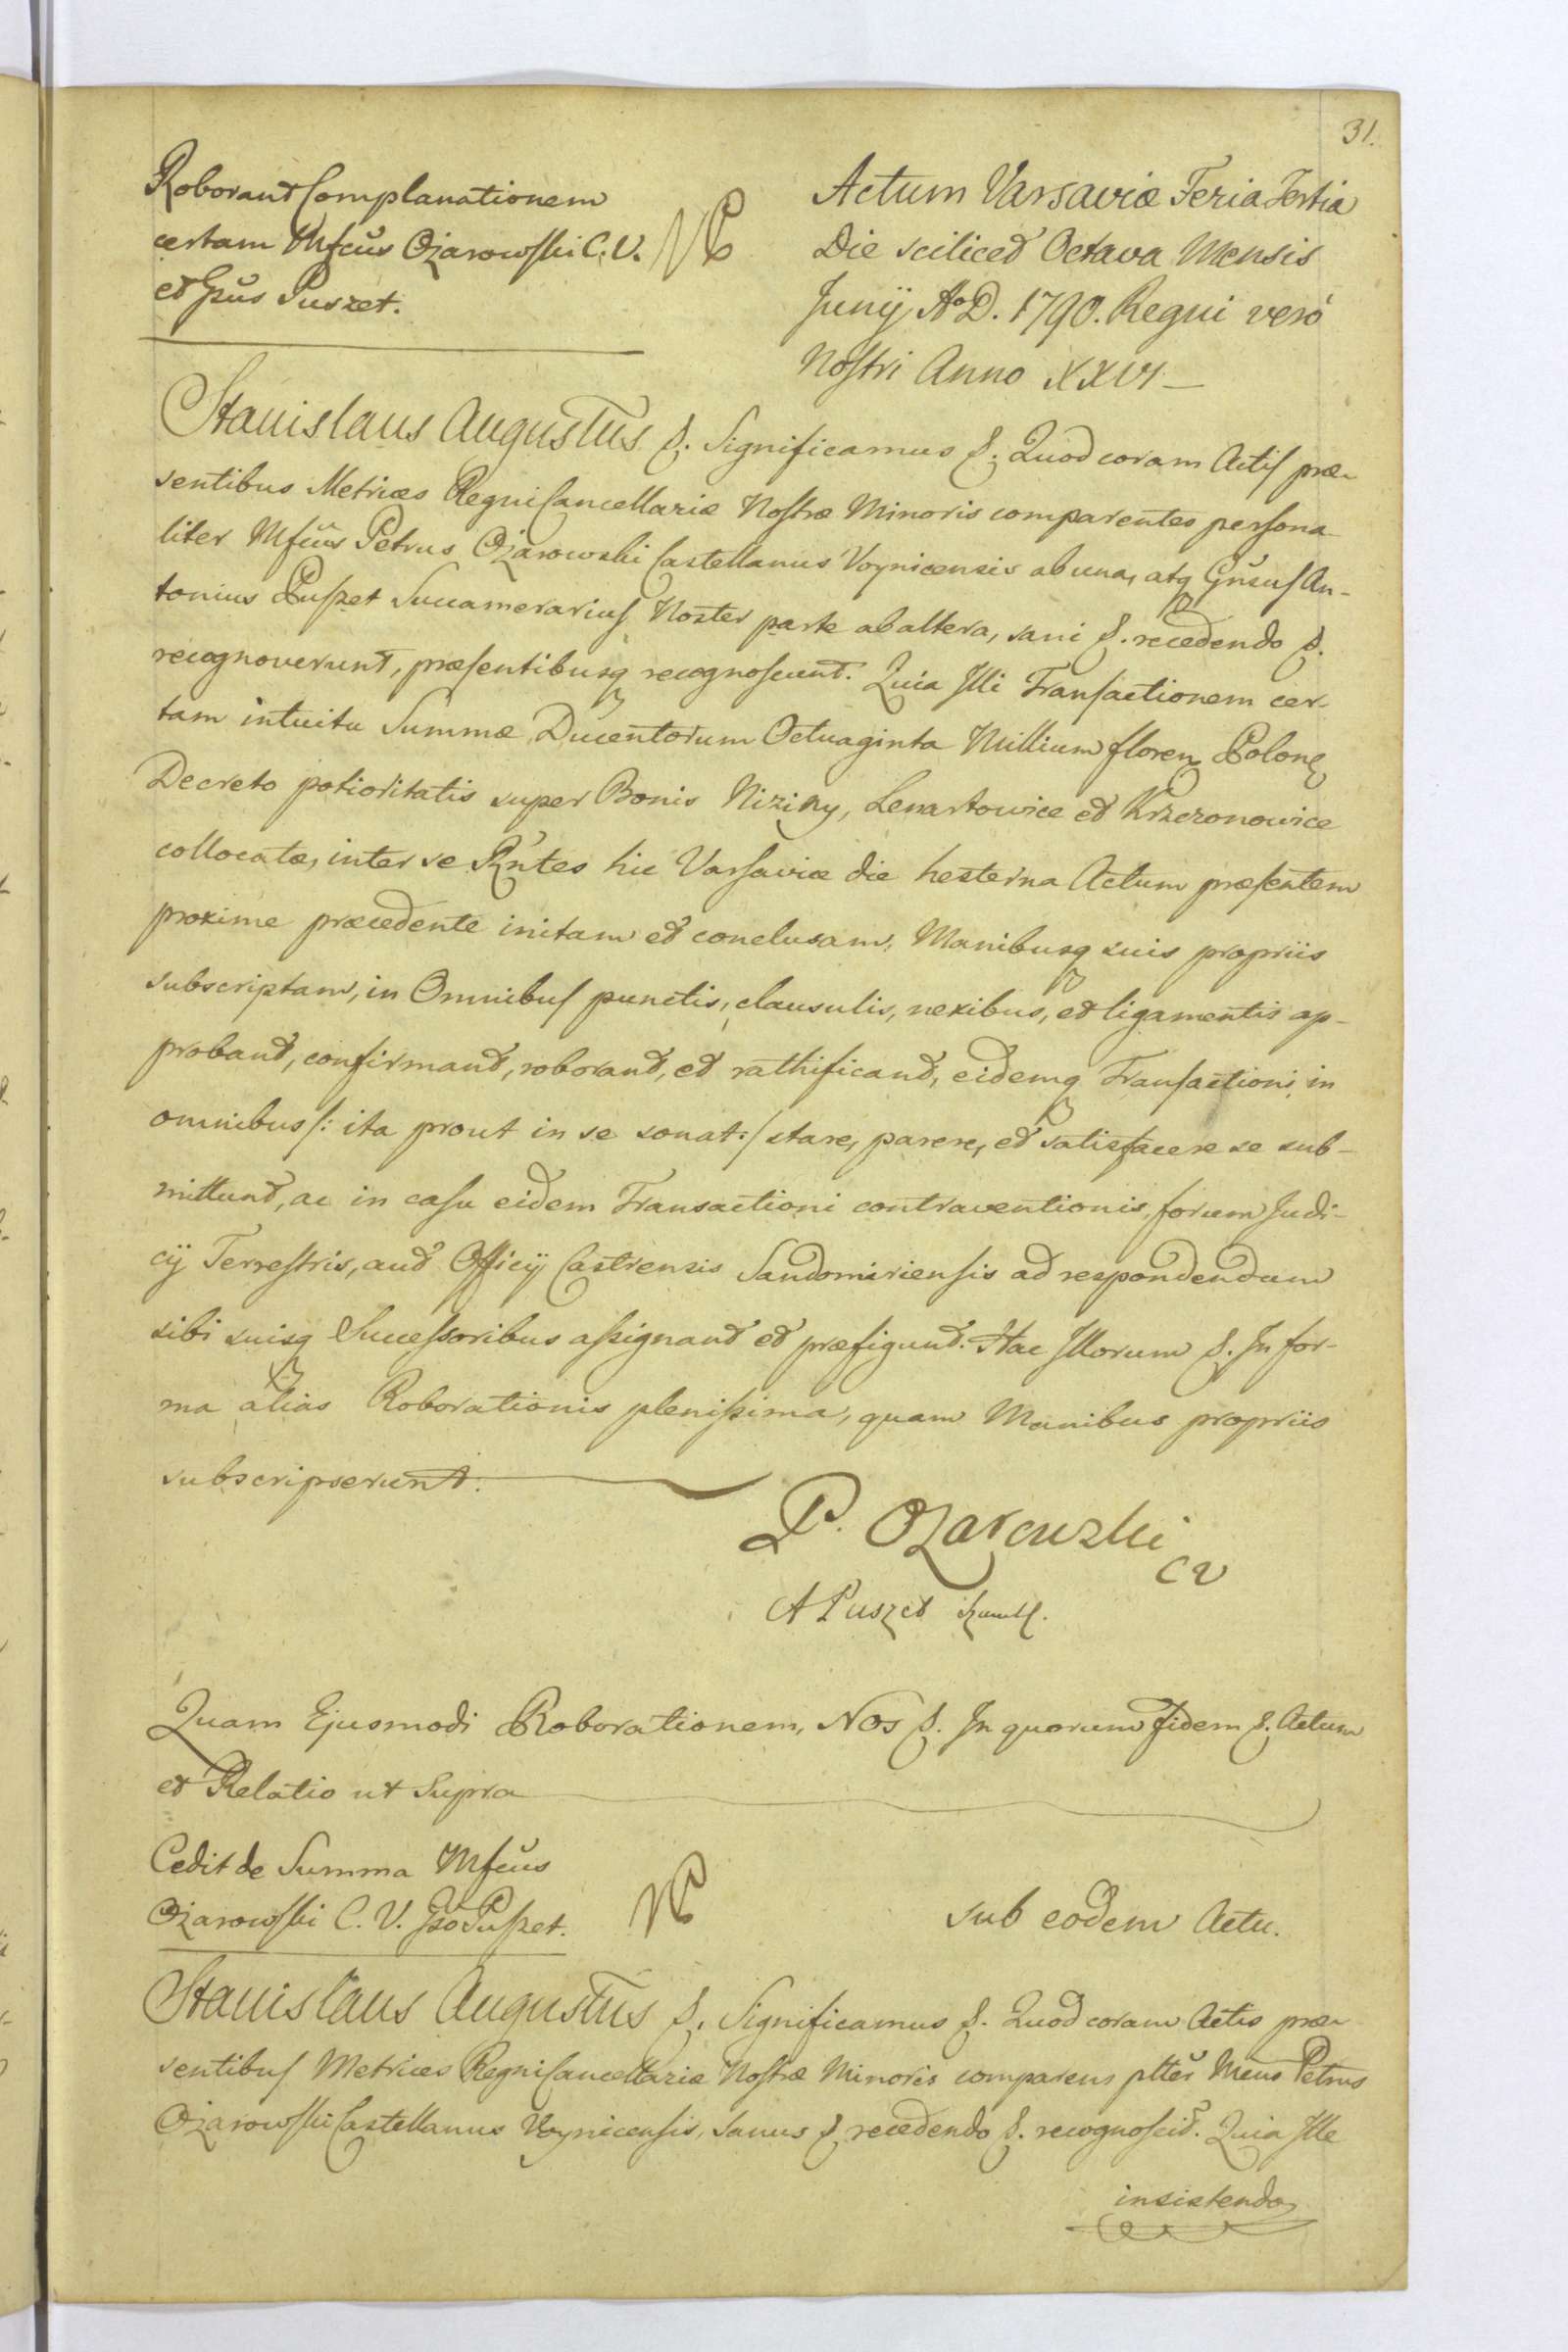 31.
Roborant Complanationem
certam Mfcus Ożarowski C. V.
et Gsus Puszet.
Actum Varsaviæ Feria Tertia
Die scilicet Octava Mensis
Junij Ao D. 1790. Regni verò
Nostri Anno XXVI
Stanislaus Augustus &. Significamus &. Quod coram Actis præ-
sentibus Metrices Regni Cancellariæ Nostræ Minoris comparentes persona-
liter Mfcus Petrus Ożarowski Castellanus Voynicensis ab una, atq Gnsus An-
tonius Puszet Succamerarius Noster parte ab altera, sani &. recedendo &.
recognoverunt, præsentibusq recognoscunt. Quia Illi Transactionem cer-
tam intuitu Summæ Ducentorum Octuaginta Millium floren Polon
Decreto potioritatis super Bonis Niziny, Lenartowice et Krzczonowice
collocatæ, inter se Rntes hic Varsaviæ die hesterna Actum præsentem
proxime præcedente initam et conclusam, Manibusq suis propriis
subscriptam, in Omnibus punctis, clausulis, nexibus, et ligamentis ap-
probant, confirmant, roborant, et rathificant, eidemq Transactioni in
omnibus /: ita prout in se sonat :/ stare, parere, et satisfacere se sub-
mittunt, ac in casu eidem Transactioni contraventionis, forum Judi-
cij Terrestris, aut Officij Castrensis Sandomiriensis ad respondendum
sibi suisq Successoribus assignant et præfigunt. Hac Illorum &. In for-
ma alias Roborationis plenissima, quam Manibus propriis
subscripserunt.
P. Ożarowski
CV
A Puszet
Quam Ejusmodi Roborationem, Nos &. In quorum Fidem &. Actum
et Relatio ut Supra
Cedit de Summa Mfcus
Ożarowski C. V. Gso Puszet.
sub eodem Actu.
Stanislaus Augustus &. Significamus &. Quod coram Actis præ-
sentibus Metrices Regni Cancellariæ Nostræ Minoris comparens plter Mcus Petrus
Ożarowski Castellanus Voynicensis, sanus &. recedendo &. recognoscit. Quia Ille
insistendo